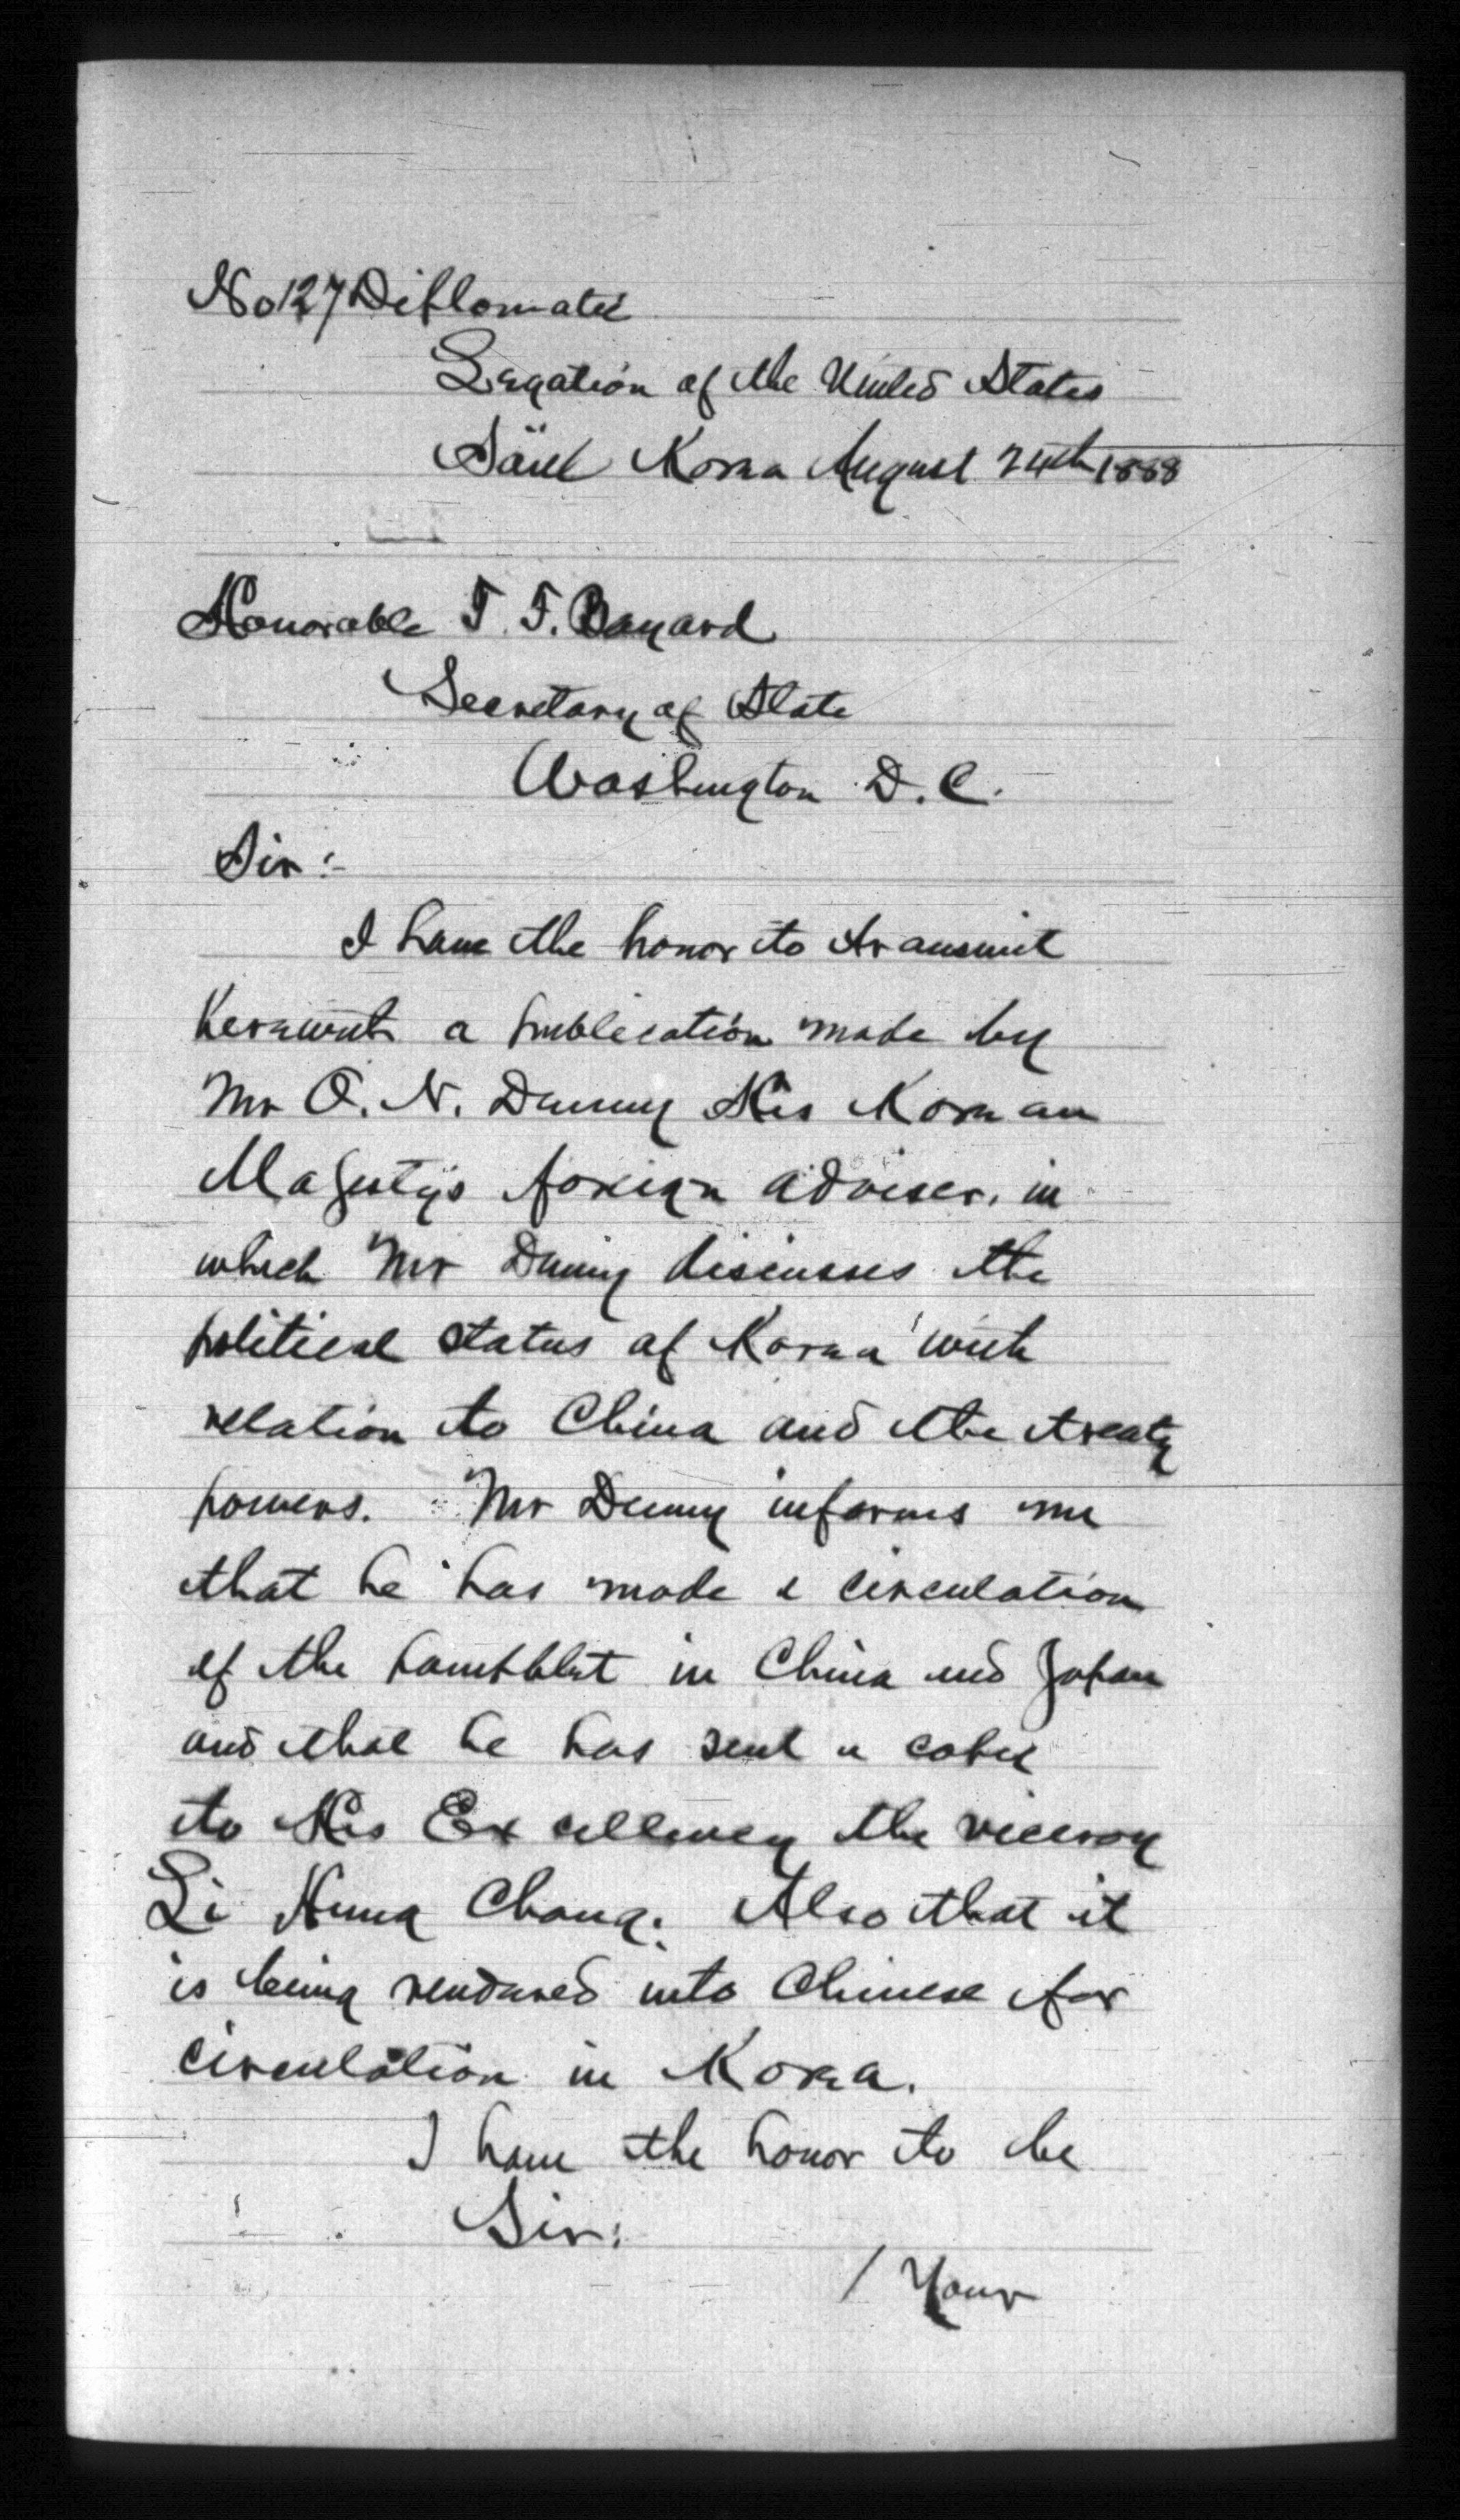 No 127 Diplomatic
Legation of the United States
Söul Korea August 24th 1888
Honorable T. F. Bayard
Secretary of State
Washington D.C.
Sir:-
I have the honor to transmit
herewith a publication made by
Mr O. N. Denny His Korean
Majesty's foreign adviser, in
which Mr Denny discusses the
political status of Korea with
relation to China and the treaty
powers. Mr Denny informs me
that he has made a circulation
of the pamphlet in China and Japan
and that he has sent a copy
to His Excellency the viceroy
Li Hung Chang. Also that it
is being rendered into Chinese for
circulation in Korea.
I have the honor to be
Sir:
/ Your